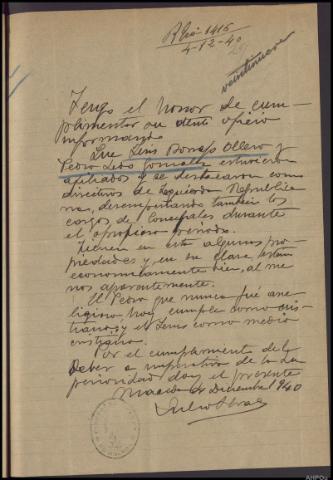 Rº Gó 1416
4-12-40
29
veintinueve
Tengo el honor de cum-
plimentar su atento oficio
informando
Que Luis Donajo Ollero y
Pedro Ledo González estuvieron
afiliados y se destacaron como
directivos de Izquierda Republica
na, desempeñando también los
cargos de Concejales durante
el oprobioso periodo.
Tienen en esta algunos pro-
piedades y en su clase, están
economicamente bien, al me
nos aparentemente.
El Pedro que nunca fué are-
ligioso, hoy cumple como cris-
tiano, y el Luis como medio
cristiano.
Por el cumplimiento de la
Deber e imperativo de la Su
perioridad doy el presente
4 Diciembre 940
AHPOu